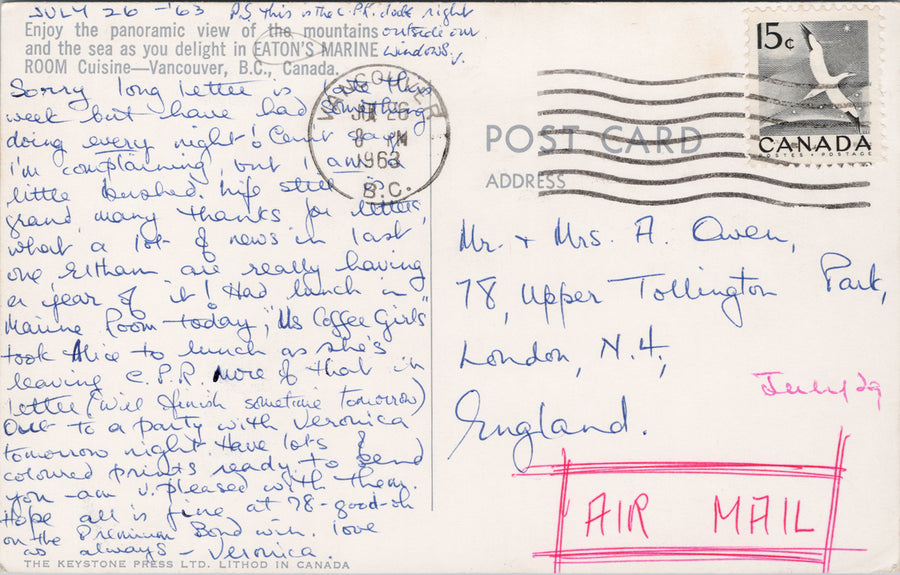 JULY 26 -'63 P.S. This is the C.P.R. dock right
outside our
windows. V.
Enjoy the panoramic view of the mountains
and the sea as you delight in EATON'S MARINE
ROOM Cuisine—Vancouver, B.C., Canada.
Sorry long letter is late this
week but have had something
doing every night! Can't say
i'm complaining, but i am a
little bushed. Life still is
grand, many thanks for letters,
what a lot of news in last
one, Eltham are really having
a year of it! Had lunch in
Marine Room today, "Us Coffee Girls"
took Alice to lunch as she's
leaving C.P.R. more of that in
letter (will finish sometime tomorrow)
Out to a party with Veronica
tomorrow night. Have lots of
coloured prints ready to send
you - am v. pleased with them.
Hope all is fine at 78 - good-oh
on the Premium Bond win. love
as always - Veronica.
THE KEYSTONE PRESS LTD. LITHO'D IN CANADA
VANCOUVER
JUL 26
8 PM
1963
B.C.
15c
CANADA
POSTES • POSTAGE
POST CARD
ADDRESS
Mr. + Mrs. A. Owen,
78, Upper Tollington Park,
London, N.4,
England.
July 29
AIR MAIL